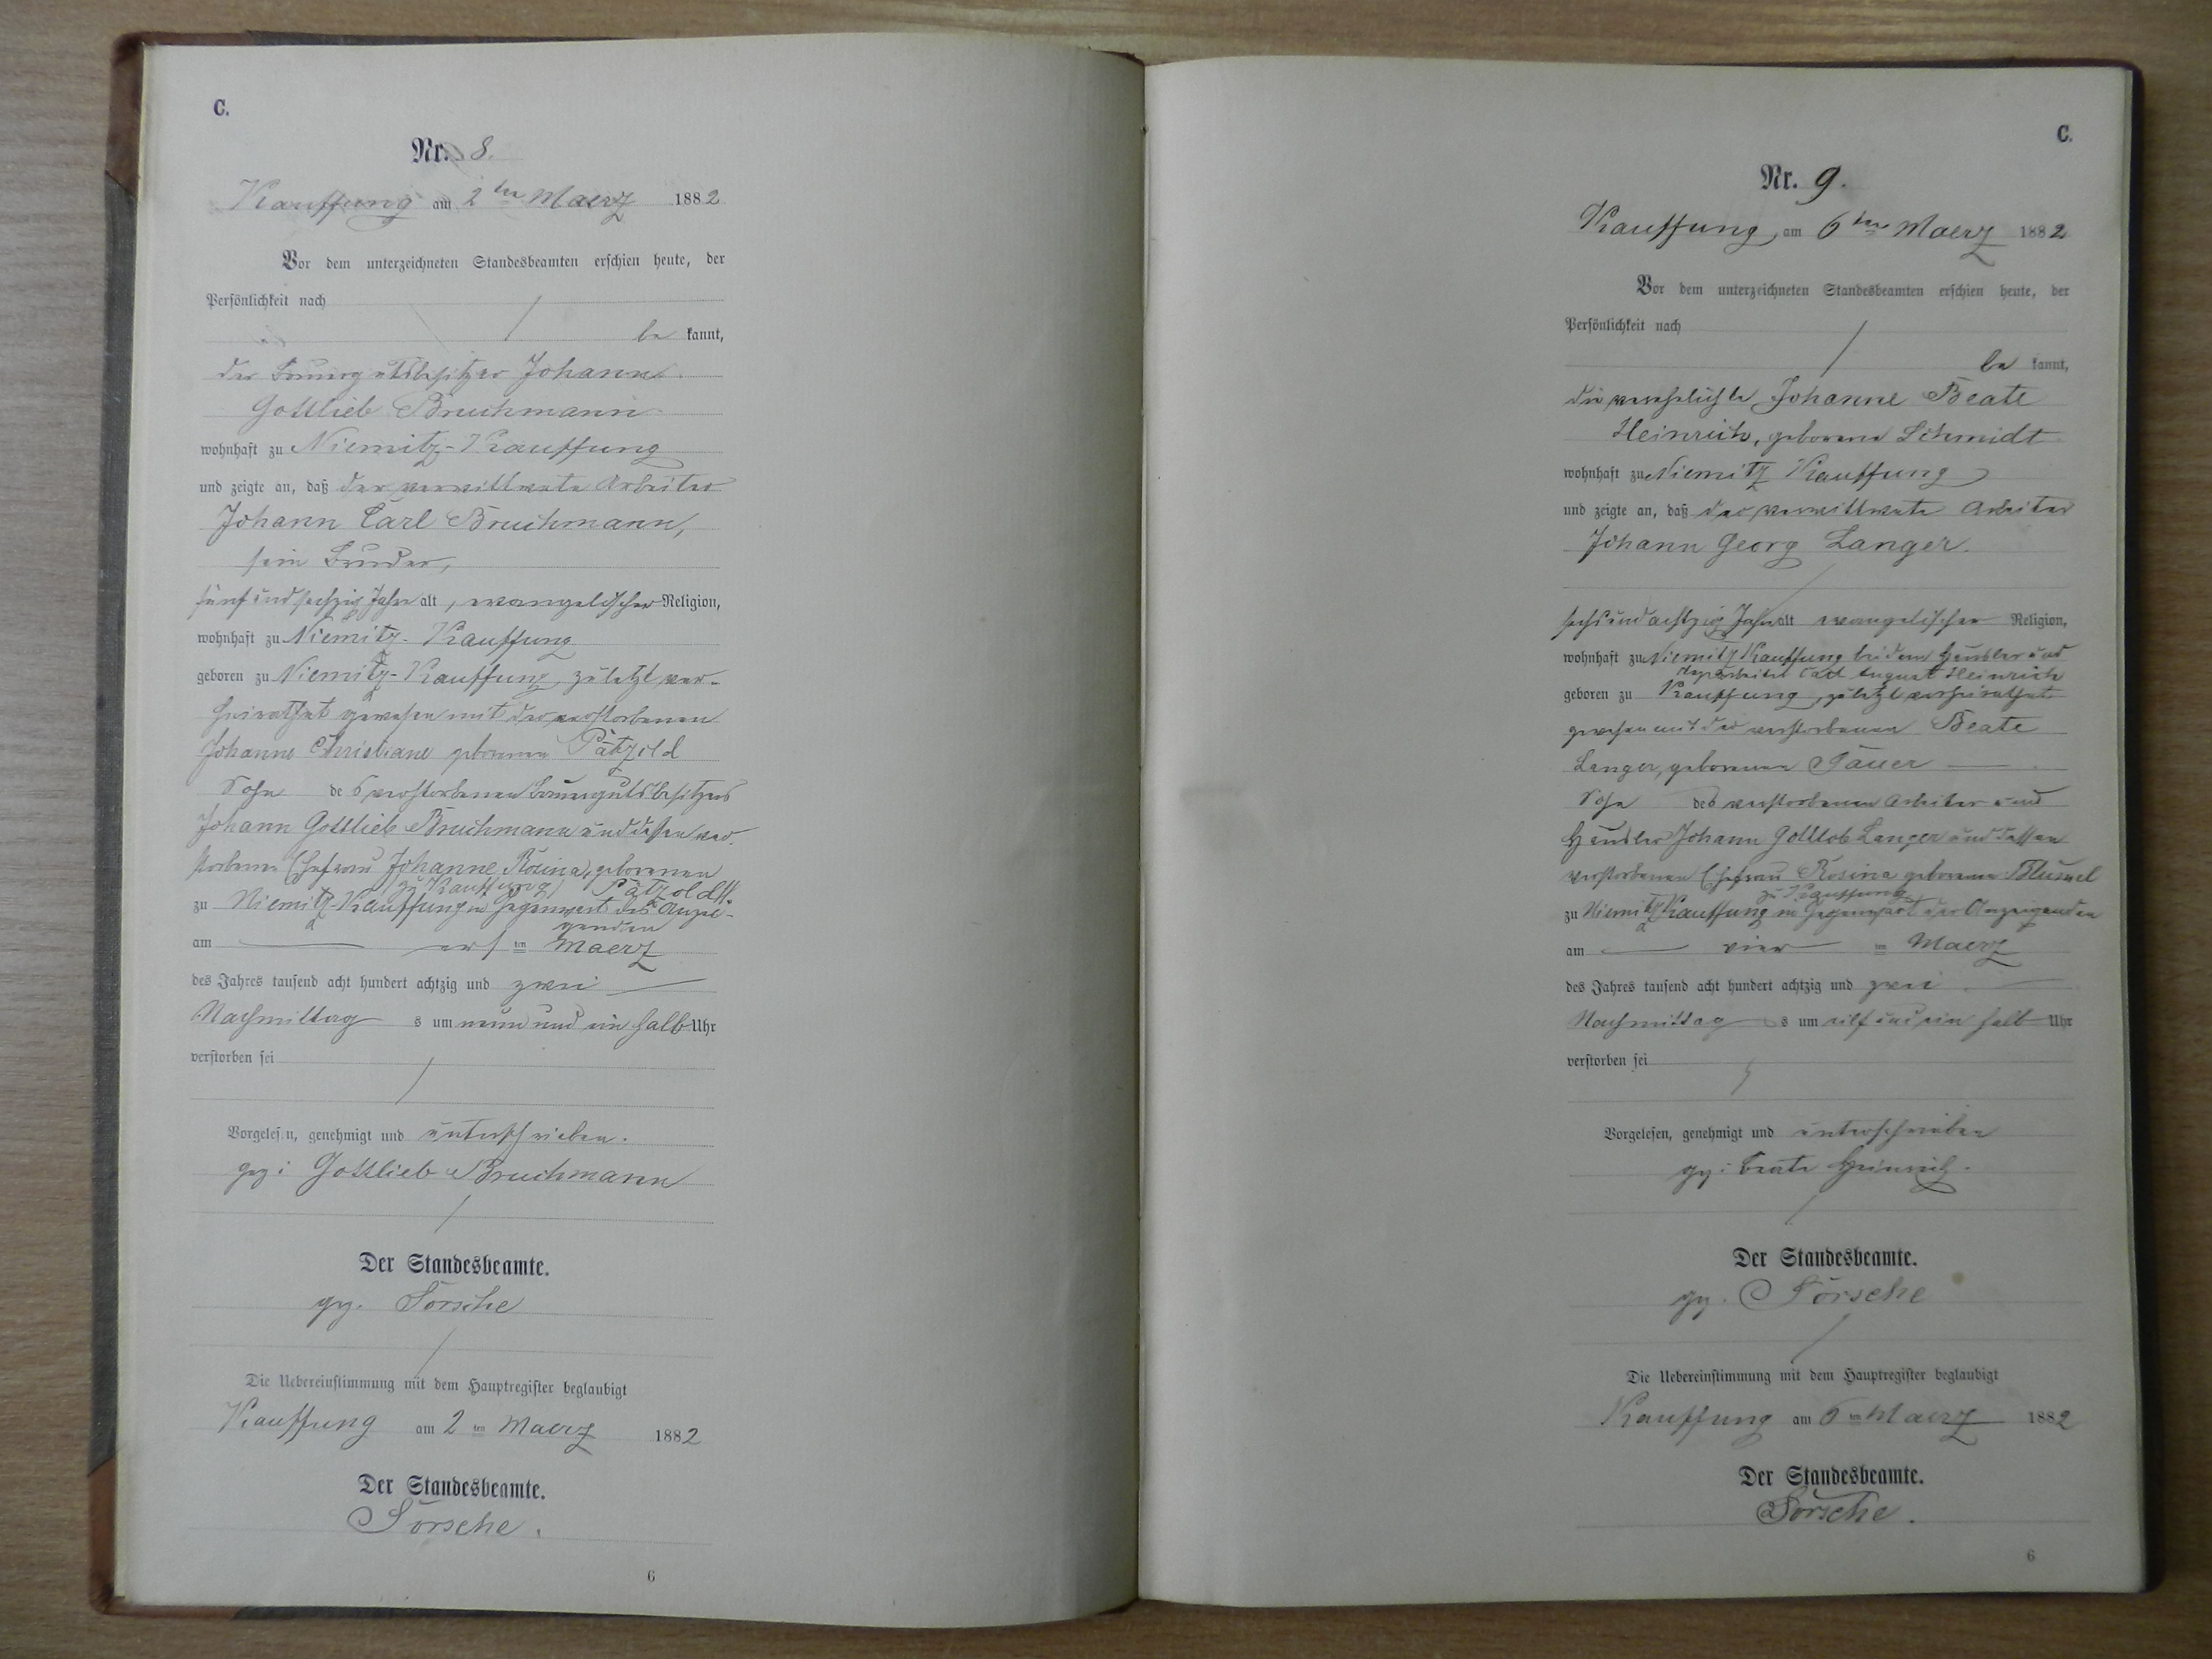 C.
Nr. 8.
Kauffung am 2ten Maerz 1882
Vor dem unterzeichneten Standesbeamten erschien heute, der
Persönlichkeit nach
be kannt,
der Bauergutsbesitzer Johann
Gottlieb Bruchmann
wohnhaft zu Niemitz-Kauffung
und zeigte an, daß der verwittwete Arbeiter
Johann Carl Bruchmann,
sein Bruder,
fünf und sechzig Jahr alt, evangelischer Religion,
wohnhaft zu Niemitz-Kauffung
geboren zu Niemitz-Kauffung, zuletzt ver-
heirathet gewesen mit der verstorbenen
Johanne Christiane geborenen Pätzold
Sohn des verstorbenen Bauergutsbesitzers
Johann Gottlieb Bruchmann und dessen ver-
storbenen Ehefrau Johanne Rosina, geborenen
(zu Kauffung) Pätzoldt
zu Niemitz-Kauffung in Gegenwart des Anzei-
genden
am ersten Maerz
des Jahres tausend acht hundert achtzig und zwei
Nachmittag s um neun und ein halb Uhr
verstorben sei
Vorgelesen, genehmigt und unterschrieben.
gez: Gottlieb Bruchmann
Der Standesbeamte.
gez. Sörsche
Die Uebereinstimmung mit dem Hauptregister beglaubigt
Kauffung am 2 ten Maerz 1882
Der Standesbeamte.
Sörsche.
6
C.
Nr. 9.
Kauffung, am 6ten Maerz 1882
Vor dem unterzeichneten Standesbeamten erschien heute, der
Persönlichkeit nach
be kannt,
die verehelichte Johanne Beate
Heinrich, geborene Schmidt
wohnhaft zu Niemitz Kauffung
und zeigte an, daß der verwittwete Arbeiter
Johann Georg Langer.
sechs und achtzig Jahr alt evangelischer Religion,
wohnhaft zu Niemitz Kauffung bei dem Häusler und
Carl August Heinrich
geboren zu Kauffung, zuletzt verheirathet
gewesen mit der verstorbenen Beate
Langer, geborenen
Sohn des verstorbenen Arbeiter und
Häusler Johann Gottlob Langer und dessen
verstorbenen Ehefrau Rosina geborenen
zu Kauffung
zu Niemitz Kauffung in Gegenwart der Anzeigenden
am vier ten Maerz
des Jahres tausend acht hundert achtzig und zwei
Nachmittag s um eilf und ein halb Uhr
verstorben sei
Vorgelesen, genehmigt und unterschrieben
gez: Beate Heinrich.
Der Standesbeamte.
gez. Sörsche
Die Uebereinstimmung mit dem Hauptregister beglaubigt
Kauffung am 6 ten Maerz 1882
Der Standesbeamte.
Sörsche.
6